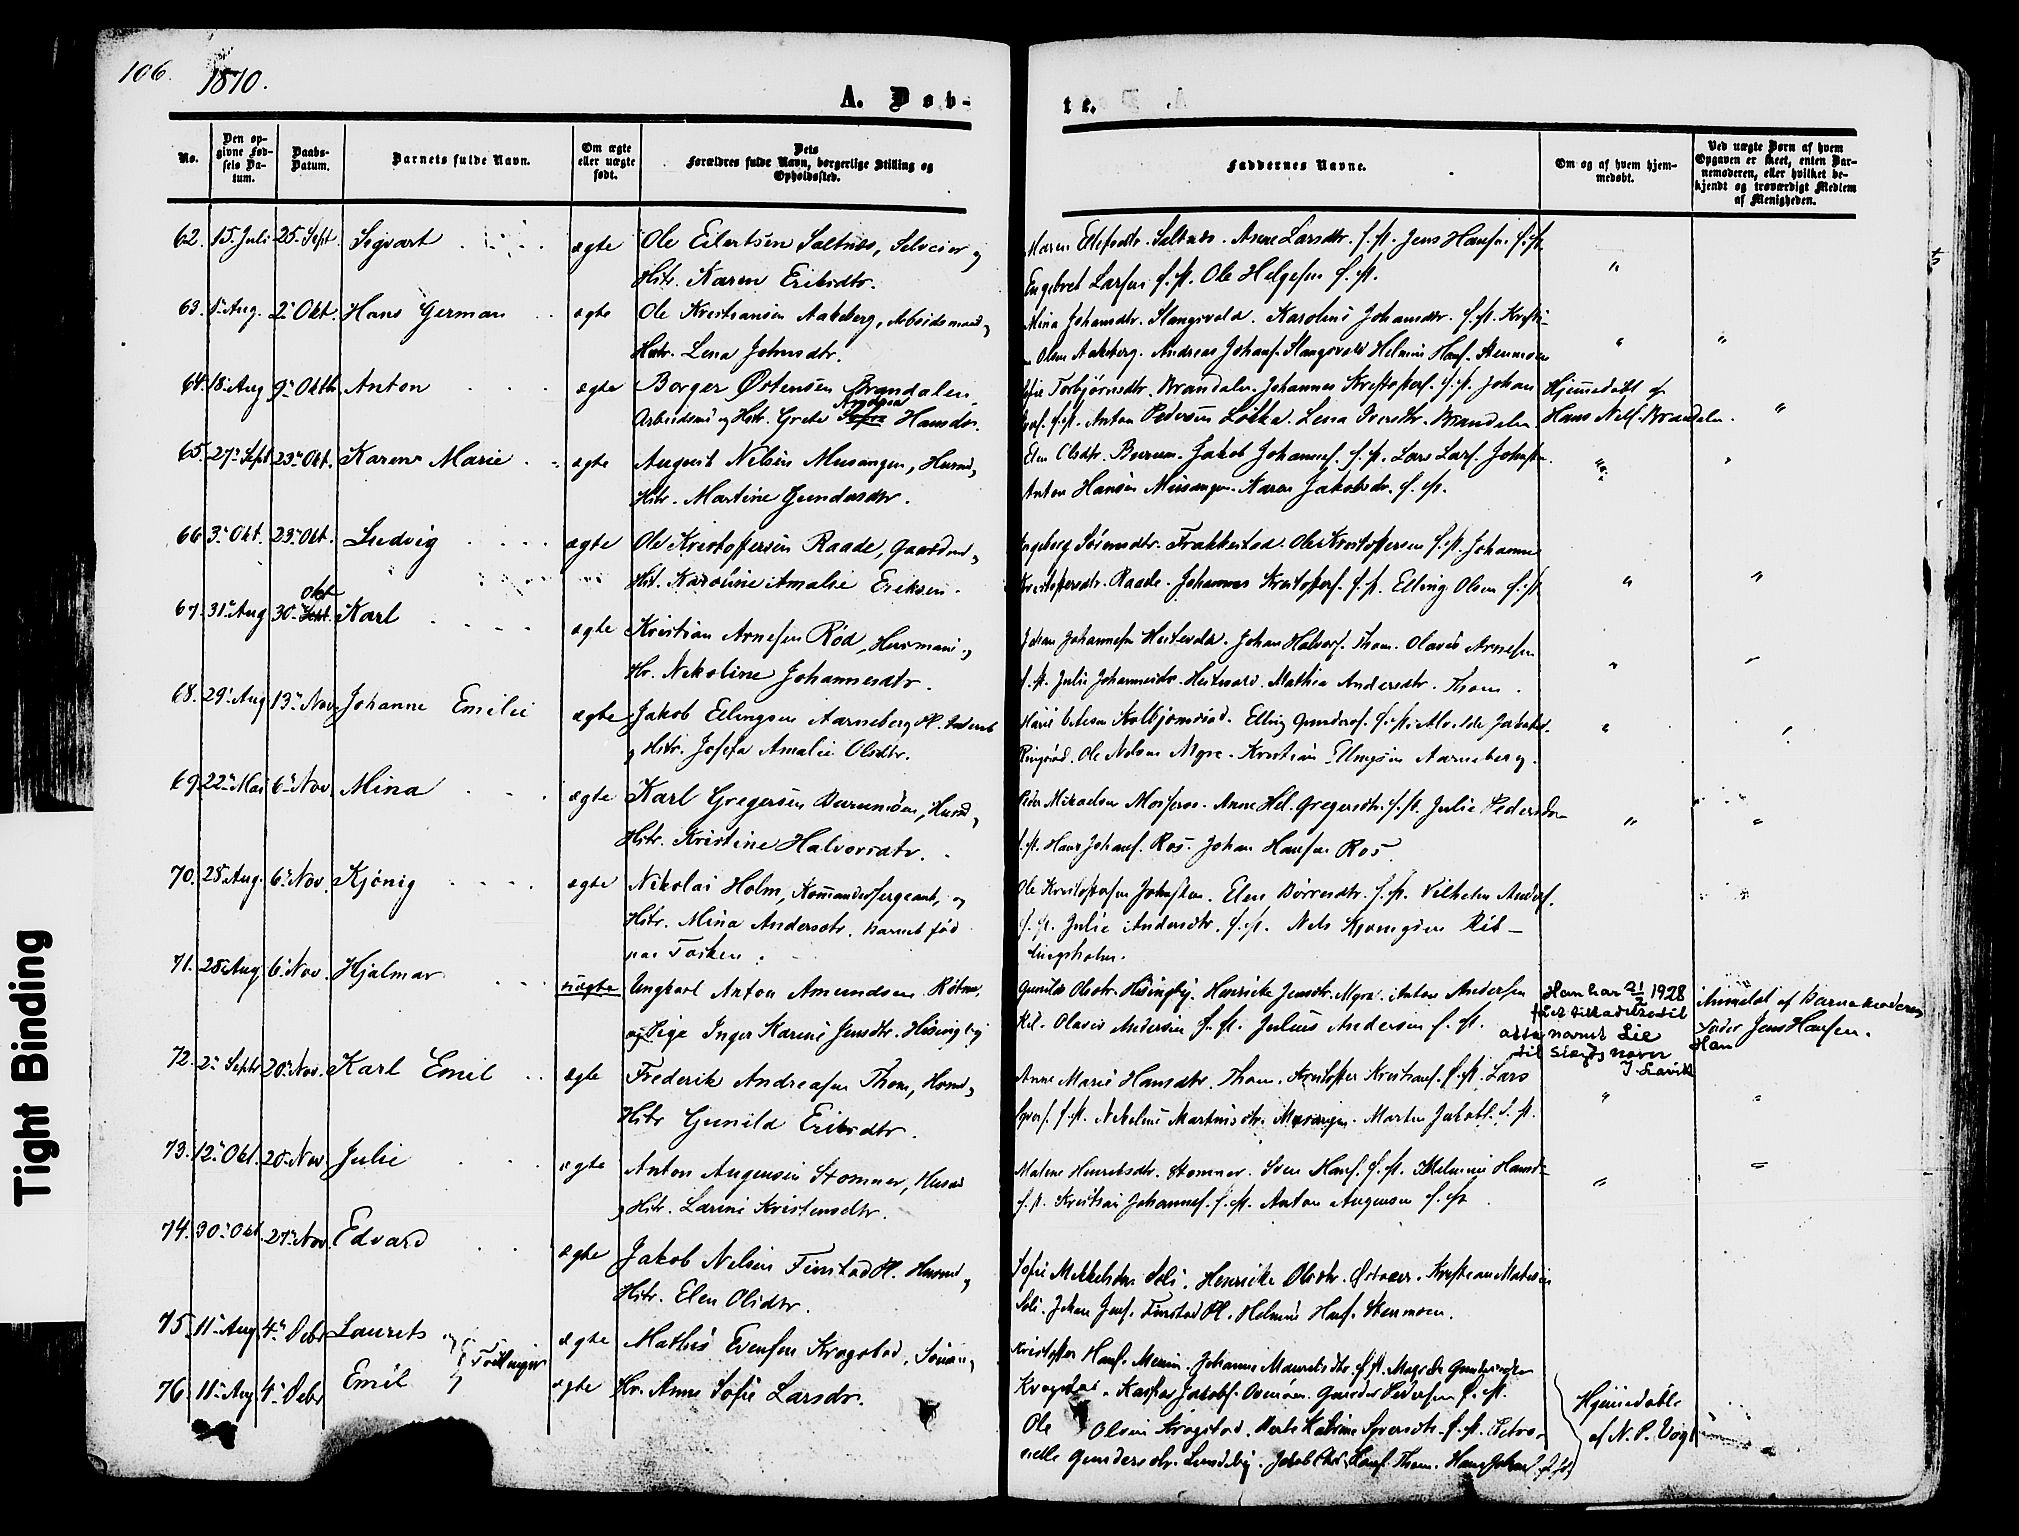 106.
1870.
A. Døb-
te.
No.
Den op-
givne Fød-
sels Da-
tum.
Daabs-
Datum.
Barnets fulde Navn.
Om ægte
eller uægte
født.
Dets
Forældres fulde Navn, borgerlige Stilling og
Opholdssted.
Faddernes Navne.
Om og af hvem hjem-
medøbt.
Ved uægte Børn af hvem
Opgaven er skeet, enten Bar-
nemoderen, eller hvilket be-
kjendt og troværdigt Medlem
af Menigheden.
62. 15. Juli 25. Sept. Sigvart ægte Ole Eilertsen Saltnes, Selveier og
Hstr. Karen Eriksdtr.
Saltnes. Anne Larsdtr. s. st. Jens Hansen s. st.
Engebret Larsen s. st. Ole Helgesen s. st.
63. Aug. 2 Okt. Hans German ægte Ole Kristiansen Aakeberg, Arbeidsmand,
Hstr. Lena Johnsdtr.
Mina Johansdtr. Slangsvold. Karoline Johansdtr. s. st. Kristi-
Olsen Aakeberg. Andreas Johans. Slangsvold Helmine Hans. Stenmoen
64. 18. Aug 9 Okt. Anton ægte Borger Østensen Brandalen,
Arbeidsmd og Hstr. Grete Hansdtr.
Torbjørnsdtr. Brandalen. Johannes Kristofers. s. st. Johan
s. st. Anton Pedersen Løkka. Lena Iversdtr. Brandalen
Hjemmedøbt af
Hans Nels. Brandalen.
65. 27 Sept 23 Okt. Karen Marie ægte August Nelsen Musangen, Husmd,
Hstr. Martine Gundersdtr.
Elen Olsdtr. Burum. Jakob Johannes. s. st. Lars Lars.
Anton Hansen Musangen. Karen Jakobsdtr. s. st.
66 3 Okt. 23 Okt. Ludvig ægte Ole Kristoffersen Raade, Gaardmd,
Hst. Karoline Amalie Eriksen.
Ingeborg Sørensdtr. Frakkestad. Ole Kristoffersen s. st. Johanne
Kristoffersdtr. Raade. Johannes Kristoffers. s. st. Elling Olsen s. st.
67. 31 Aug 30 Okt Karl ægte Kristian Arnesen Rød, Husmand,
Hr. Nikoline Johannesdtr.
Johan Johannesen Hestevold. Johan Halvors. Thom. Olavus Arnesen
s. st. Julie Johannesdtr. Hestevold. Mathea Andersdtr. Thom.
68. 29 Aug 13 Nov Johanne Emilie ægte Jakob Ellingsen Aarneberg Pl.
og Hstr. Josefa Amalie Olsdtr.
Kolbjørnsrød. Elling Gunders. s. st. Jakobsd.
Ringsrød. Ole Nelsen Myre. Kristian Ellingsen Aarneberg.
69. 22 Mai 6 Nov. Mina ægte Karl Gregersen Burumøen, Husmd,
Hstr. Kristine Halvorsdtr.
Mikaelsen Mosseros. Anne Hel. Gregersdtr. s. st. Julie Pedersdtr
s. st. Hans Johans. Ros. Johan Hansen Ros.
70. 28 Aug. 6 Nov. Kjønig ægte Nikolai Holm, Kommandersergeant, og
Hstr. Mina Andersdtr. barnet fød
paa Torken.
Ole Kristoffersen. Elen Børresdtr. s. st. Vilhelm Anders.
s. st. Julie Andersdtr. s. st. Nels Kjønigsen Rit-
lingsholm.
71. 28 Aug 6 Nov. Hjalmar uægte Ungkarl Anton Amundsen Røtne,
og Pige Inger Karine Jensdtr. Huseby
Gunild Olsdtr. Henrike Jensdtr. Myra. Anton Andersen
Olaves Andersen s. st. Julius Andersen s. st.
Han har 21/2 1928
fået tilladelse til
atta navnet Lie
til slegtsnavn
J. Lavik
Anmeldt af Barnemoderens
Fader Jens Hansen.
72. 2 Septr 20 Nov. Karl Emil ægte Frederik Andreasen Thom, Husmd,
Hstr Gunild Eriksdtr.
Anne Marie Hansdtr. Thom. Kristoffer Kristians. s. st. Lars
s. st. Nekoline Martinusdtr. Musangen. Martin Jakobs. s. st.
73. 12 Okt. 20 Nov Julie ægte Anton Augensen Stomner, Husmd
og Hstr. Larine Kristensdtr.
Malene Henriksdtr. Stomner. Sven Hans. s. st. Helmine Hansd-
s. st. Kristian Johannes. s. st. Anton Augensen s. st.
74. 30 Okt. 27 Nov. Edvard ægte Jakob Nelsen Finstad Pl. Husmd,
Hstr. Elen Olsdtr.
Sofie Mikkelsdtr. Soli. Henrike Olsdtr. Kristian Mathisen
Soli. Johan Jens. Finstad Pl. Helmine Hans. Stenmoen.
75. 11 Aug 4 Debr Laurits og Tvillinger ægte Mathis Evensen Krogstad,
76. 11 Aug 4 Debr Emil ægte Hr. Anne Sofie Larsdtr.
Kristoffer Hans. Johanne Mauritsdtr. s. st.
Krogstad. Kasper Jakobs. Gunder Pedersen s. st.
Ole Olsen Krogstad. Berte Katrine Syversdtr. s. st. Petro-
nelle Gundersdtr. Lundeby. Jakob Chr. Lars. Thom. Hans Johans. s. st.
Hjemmedøbte
af N. P. Vogt
Tight Binding